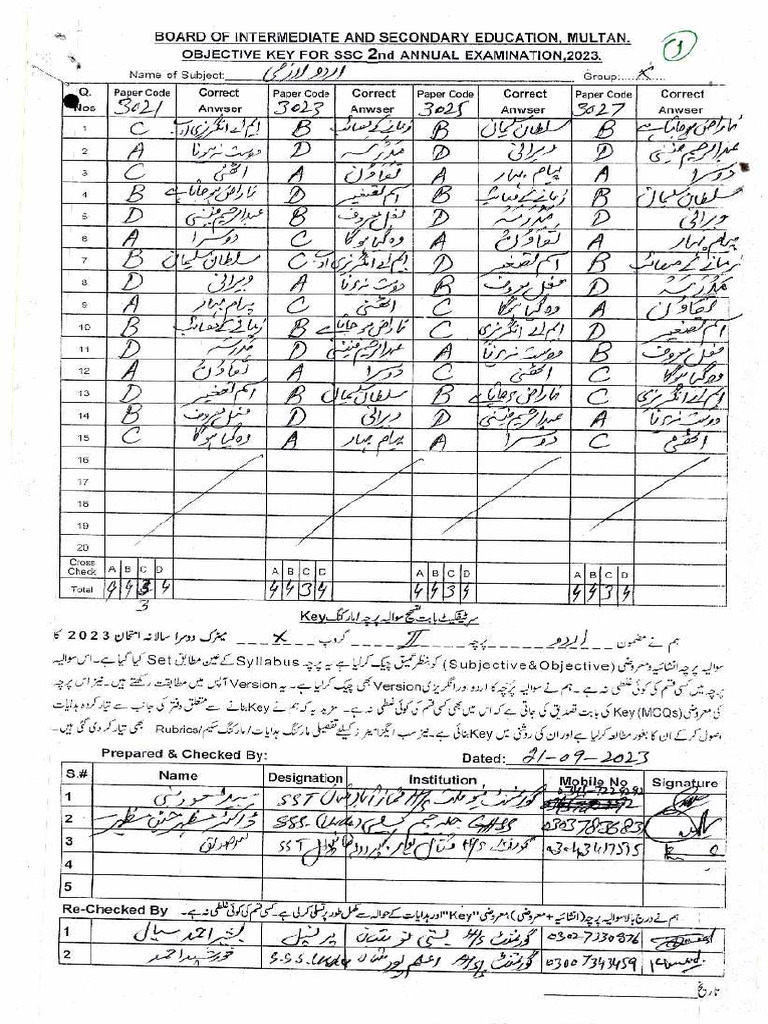 BOARD OF INTERMEDIATE AND SECONDARY EDUCATION, MULTAN.
OBJECTIVE KEY FOR SSC 2nd ANNUAL EXAMINATION,2023.
1
Name of Subject: اردو لازمی Group: X
Q. Nos Paper Code 3021 Correct Anwser Paper Code 3023 Correct Anwser Paper Code 3025 Correct Anwser Paper Code 3027 Correct Anwser
1 C ایم اے انگریزی ادب B زمانے کے مصائب B سلطان سلیمان B ناراض ہو جانا ہے
2 A دوست نہ ہونا D مدرسہ D ویرانی D عبدالرحیم
3 C اٹھنی A تعاون A پیام بہار A دوسرا
4 B ناراض ہو جانا ہے D اسم تصغیر B زمانے کے مصائب B سلطان سلیمان
5 D عبدالرحیم B فعل معروف D مدرسہ D ویرانی
6 A دوسرا C وہ گیا ہوگا A تعاون A پیام بہار
7 B سلطان سلیمان C ایم اے انگریزی ادب D اسم تصغیر B زمانے کے مصائب
8 D ویرانی A دوست نہ ہونا B فعل معروف D مدرسہ
9 A پیام بہار C اٹھنی C وہ گیا ہوگا A تعاون
10 B زمانے کے مصائب B ناراض ہو جانا ہے C ایم اے انگریزی D اسم تصغیر
11 D مدرسہ D عبدالرحیم A دوست نہ ہونا B فعل معروف
12 A تعاون A دوسرا C اٹھنی C وہ گیا ہوگا
13 D اسم تصغیر B سلطان سلیمان B ناراض ہو جانا ہے C ایم اے انگریزی
14 B فعل معروف D ویرانی D عبدالرحیم A دوست نہ ہونا
15 C وہ گیا ہوگا A پیام بہار A دوسرا C اٹھنی
16
17
18
19
20
Cross Check A B C D A B C D A B C D A B C D
Total 4 4 3 4 4 4 3 4 4 4 3 4 4 4 3 4
3
سرٹیفکیٹ بابت تصحیح سوالیہ پرچہ / مارکنگ Key
ہم نے مضمون اردو پرچہ II گروپ X میٹرک دوسرا سالانہ امتحان 2023 کا
سوالیہ پرچہ انشائیہ و معروضی (Subjective & Objective) کو بنظر عمیق چیک کر لیا ہے یہ پرچہ Syllabus کے عین مطابق Set کیا گیا ہے۔ اس سوالیہ
پرچہ میں کسی قسم کی کوئی غلطی نہ ہے۔ ہم نے سوالیہ پرچہ کا اردو اور انگریزی Version بھی چیک کر لیا ہے۔ یہ Version آپس میں مطابقت رکھتے ہیں۔ نیز اس پرچہ
کی معروضی Key (MCQs) کی بابت تصدیق کی جاتی ہے کہ اس میں بھی کسی قسم کی کوئی غلطی نہ ہے۔ مزید یہ کہ ہم نے Key بنانے سے متعلق دفتر کی جانب سے تیار کردہ ہدایات
وصول کر کے ان کا بغور مطالعہ کر لیا ہے اور ان کی روشنی میں Key بنائی ہے۔ نیز سب ایگزامینرز کیلئے تفصیلی مارکنگ ہدایات / مارکنگ سکیم / Rubrics بھی تیار کر دی گئی ہیں۔
Prepared & Checked By: Dated: 21-09-2023
S.# Name Designation Institution Mobile No Signature
1 SST گورنمنٹ
2 ڈاکٹر مظہر SSS. (Urdu) GHSS 0303783683
3 SST گورنمنٹ H/S 03043417515
4
5
Re-Checked By ہم نے درج بالا سوالیہ پرچہ (انشائیہ + معروضی)، معروضی "Key" اور ہدایات کے حوالہ سے مکمل طور پر تسلی کر لی ہے۔ کسی قسم کی کوئی غلطی نہ ہے۔
1 بشیر احمد سیال پرنسپل گورنمنٹ H/S 0302-7330876
2 خورشید احمد S.S.S. Urdu گورنمنٹ H/S 03007343459
تاریخ